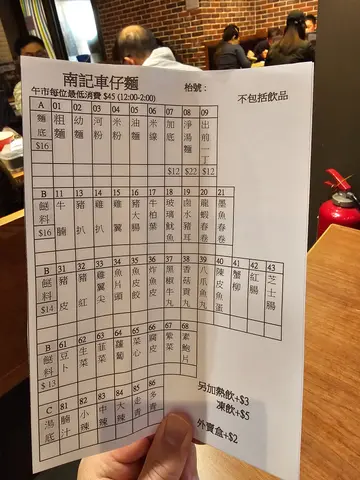 南記車仔麵
枱號：
午市每位最低消費 $45 (12:00-2:00)
不包括飲品
A 01 02 03 04 05 06 07 08 09
麵底 粗麵 幼麵 河粉 米粉 油麵 米線 加底 淨湯麵 出前一丁
$16 $12 $22 $12
B 11 13 14 15 16 17 18 19 20 21
餸料 牛腩 豬扒 雞扒 雞翼 豬大腸 牛柏葉 玻璃魷魚 鹵水豬耳 龍蝦春卷 墨魚春卷
$16
B 31 32 33 34 35 36 37 38 39 40 41 42 43
餸料 豬皮 豬紅 雞翼尖 魚片頭 魚皮餃 炸魚皮 黑椒牛丸 香菇貢丸 八爪魚丸 陳皮魚蛋 蟹柳 紅腸 芝士腸
$14
B 61 62 63 64 65 66 67 68
餸料 豆卜 生菜 韮菜 蘿蔔 菜心 腐皮 紫菜 素鮑片
$13
C 81 82 83 84 85 86
湯底 腩汁 小辣 中辣 大辣 走青 多青
另加熱飲+$3
凍飲+$5
外賣盒+$2